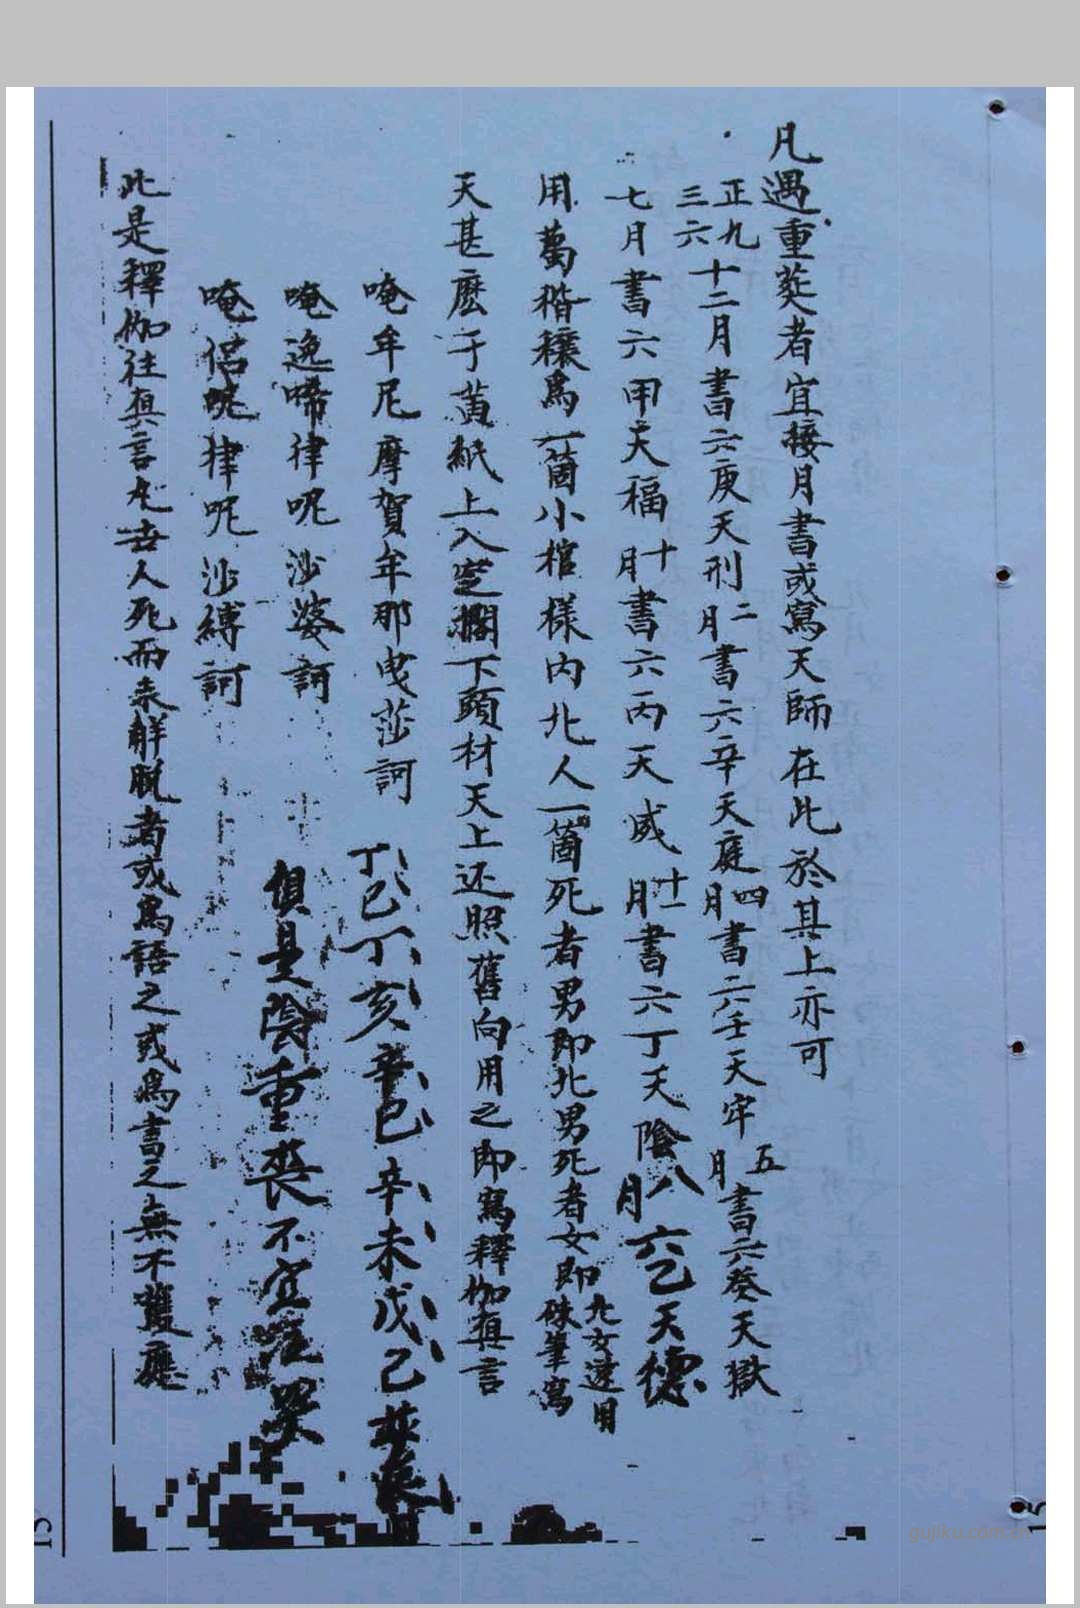 凡遇重葬者宜接月書或寫天師在此於其上亦可
正九三六十二月書六庚天刑二月書六辛天庭四月書六壬天牢五月書六癸天獄
七月書六甲天福十月書六丙天威十一月書六丁天陰八月六乙天德
用萬稭穰為一箇小棺樣內北人一箇死者男即北男死者女即北女速用硃筆寫
天甚麽于黃紙上入空擱下頭材天上还照舊向用之即寫釋伽真言
唵牟尼摩賀牟那曳莎訶
丁巳丁亥辛巳辛未戊己葬辰日
唵逸啼律呢沙婆訶
俱是陰重喪不宜
唵侣呢律呢沙縛訶
此是釋伽往真言凡世人死而未解脫者或為語之或為書之無不護應
15
gujiku.com.cn
15